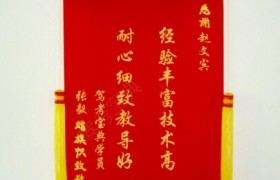 感谢赵文宾
经验丰富技术高
耐心细致教导好
驾考宝典学员
张毅 赠旗